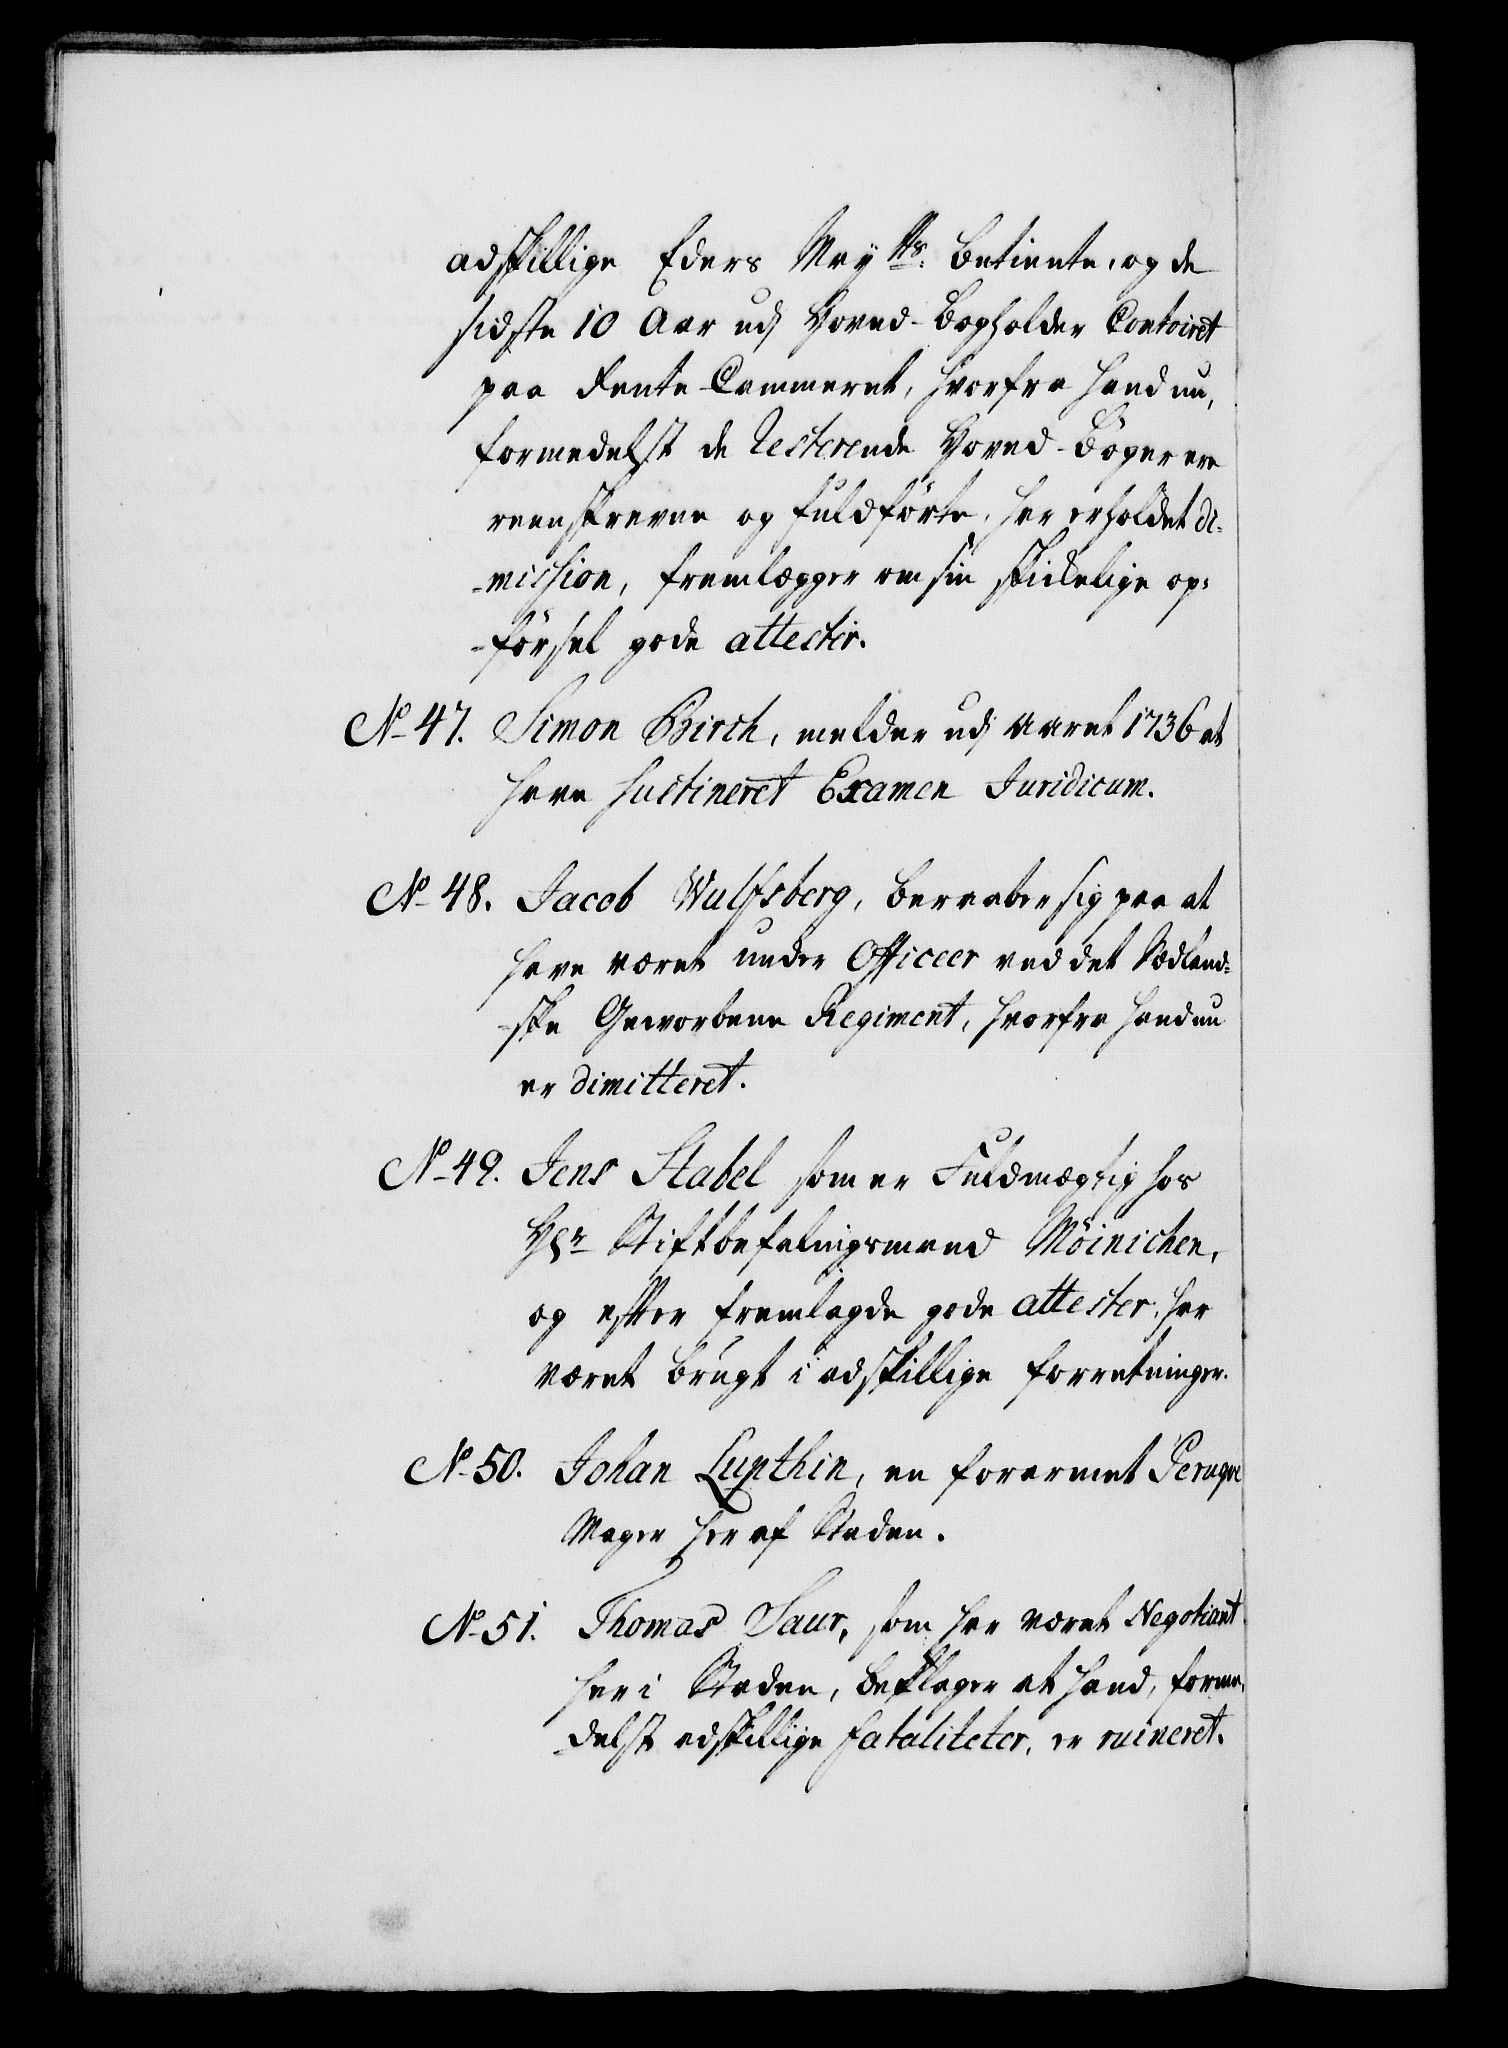 adskillige Eders May<sup>tts</sup>: Betiente, og de
sidste 10 Aar udj Hoved-Bogholder Contoiret
paa Rente-Cammeret, hvorfra hand nu,
formedelst de Resterende Hoved-Böger ere
reenskrevne og fuldförte, har erholdet di-
-mission, fremlegger om sin skickelige op-
-försel gode attester.
No 47. Simon Birch, melder udj Aaret 1736 at
have sustineret Examen Juridicum.
No 48. Jacob Wulfsberg, beraaber sig paa at
have været under Officeer ved det Sædland-
-ske Geworbene Regiment, hvorfra hand nu
er dimitteret.
No 49. Jens Stabel som er Fuldmægtig hos
Hr Stiftbefalingsmand Möinichen,
og efter fremlagde gode attester, har
været brugt i adskillige forretninger.
No 50. Johan Lupthin, en forarmet Peruqve
Mager her af Staden.
No 51. Thomas Saur, som har været Negotiant
her i Staden, beklager at hand, forme-
-delst adskillige fataliteter, er ruineret.